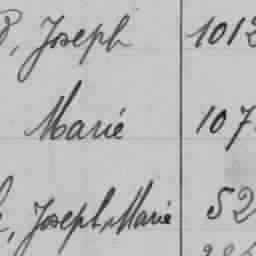 , Joseph 1012
Marie 107
, Joseph Marie 52